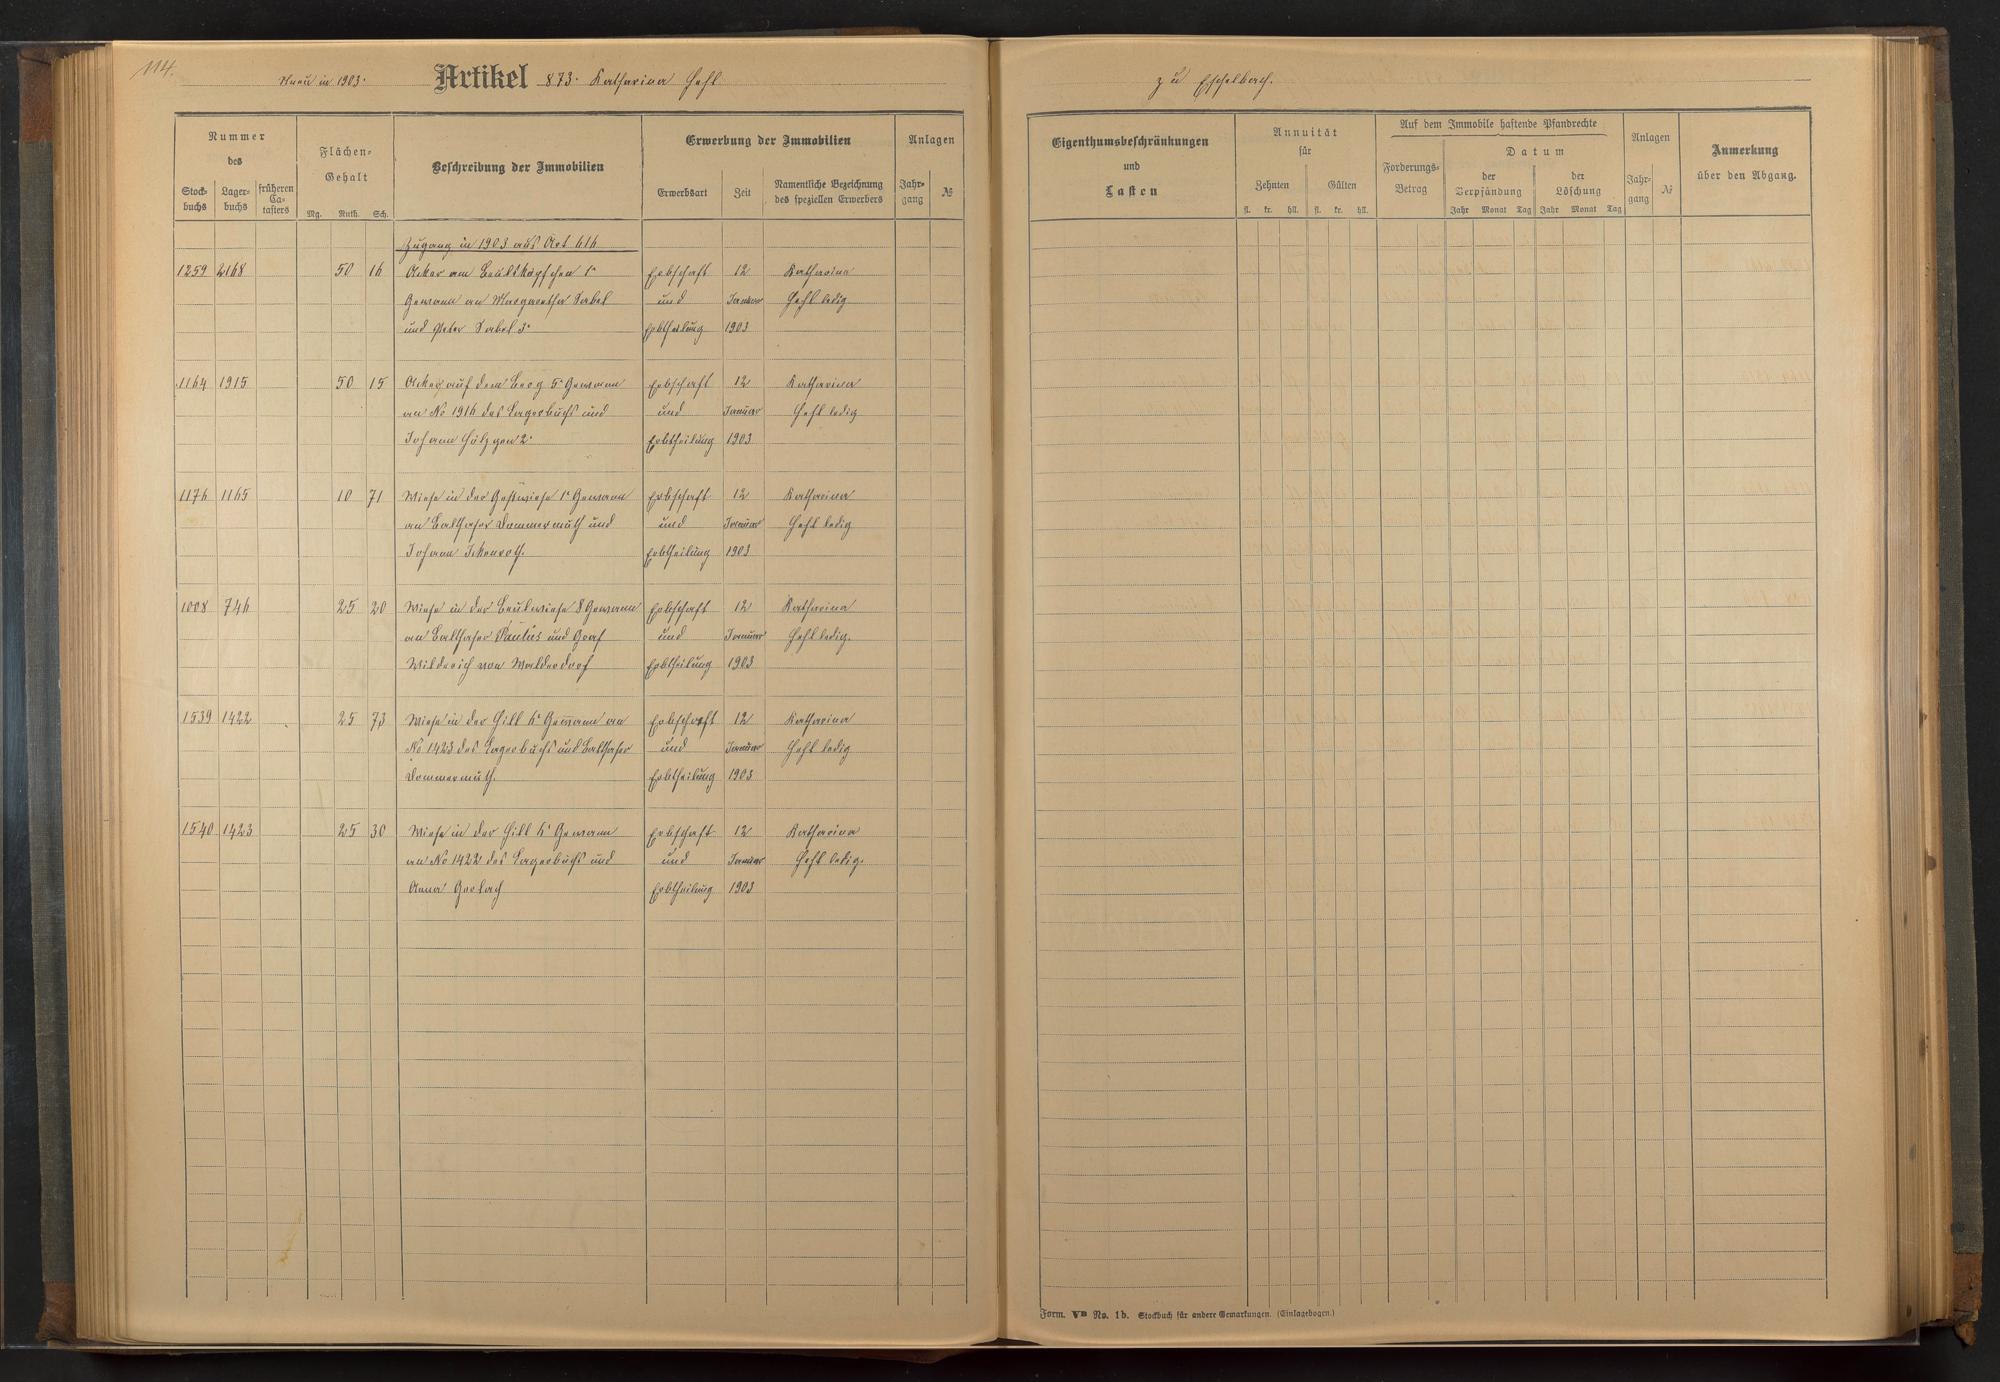 114.
Neu in 1903. Artikel 873. Katharina Hehl
Nummer
des
Stock-
buchs
Lager-
buchs
früheren
Ca-
tasters
Flächen-
Gehalt
Mg. Ruth. Sch.
Beschreibung der Immobilien
Erwerbung der Immobilien
Erwerbsart
Zeit
Namentliche Bezeichnung
des speziellen Erwerbers
Anlagen
Jahr-
gang
№
Zugang in 1903 aus Art 616
1259 2168 50 16 Acker am Beulsköpfchen 1r Erbschaft 12 Katharina
Gewann an Margaretha Sabel und Januar Hehl ledig
und Peter Sabel 3r Erbtheilung 1903
1164 1915 50 15 Acker auf dem Berg 5r Gewann Erbschaft 12 Katharina
an No 1916 des Lagerbuchs und und Januar Hehl ledig
Johann Hölzgen 2r Erbtheilung 1903
1176 1165 10 71 Wiese in der 1r Gewann Erbschaft 12 Katharina
an Balthaser Dommermuth und und Januar Hehl ledig
Johann Ickenroth. Erbtheilung 1903
1008 746 25 20 Wiese in der Beulwiese 8 Gewann Erbschaft 12 Katharina
an Balthaser Paulus und Graf und Januar Hehl ledig.
Wilderich von Walderdorf Erbtheilung 1903
1539 1422 25 73 Wiese in der Hill 6r Gewann an Erbschaft 12 Katharina
No 1423 des Lagerbuchs und Balthaser und Januar Hehl ledig
Dommermuth. Erbtheilung 1903
1540 1423 25 30 Wiese in der Hill 6r Gewann Erbschaft 12 Katharina
an No 1422 des Lagerbuchs und und Januar Hehl ledig.
Anna Gerlach Erbtheilung 1903
zu Eschelbach.
Eigenthumsbeschränkungen
und
Lasten
Annuität
für
Zehnten Gülten
fl. kr. hll. fl. kr. hll.
Auf dem Immobile haftende Pfandrechte
Forderungs-
Betrag
Datum
der
Verpfändung
der
Löschung
Jahr Monat Tag Jahr Monat Tag
Anlagen
Jahr-
gang
№
Anmerkung
über den Abgang.
Form. VB No. 1b. Stockbuch für andere Gemarkungen. (Einlagebogen.)